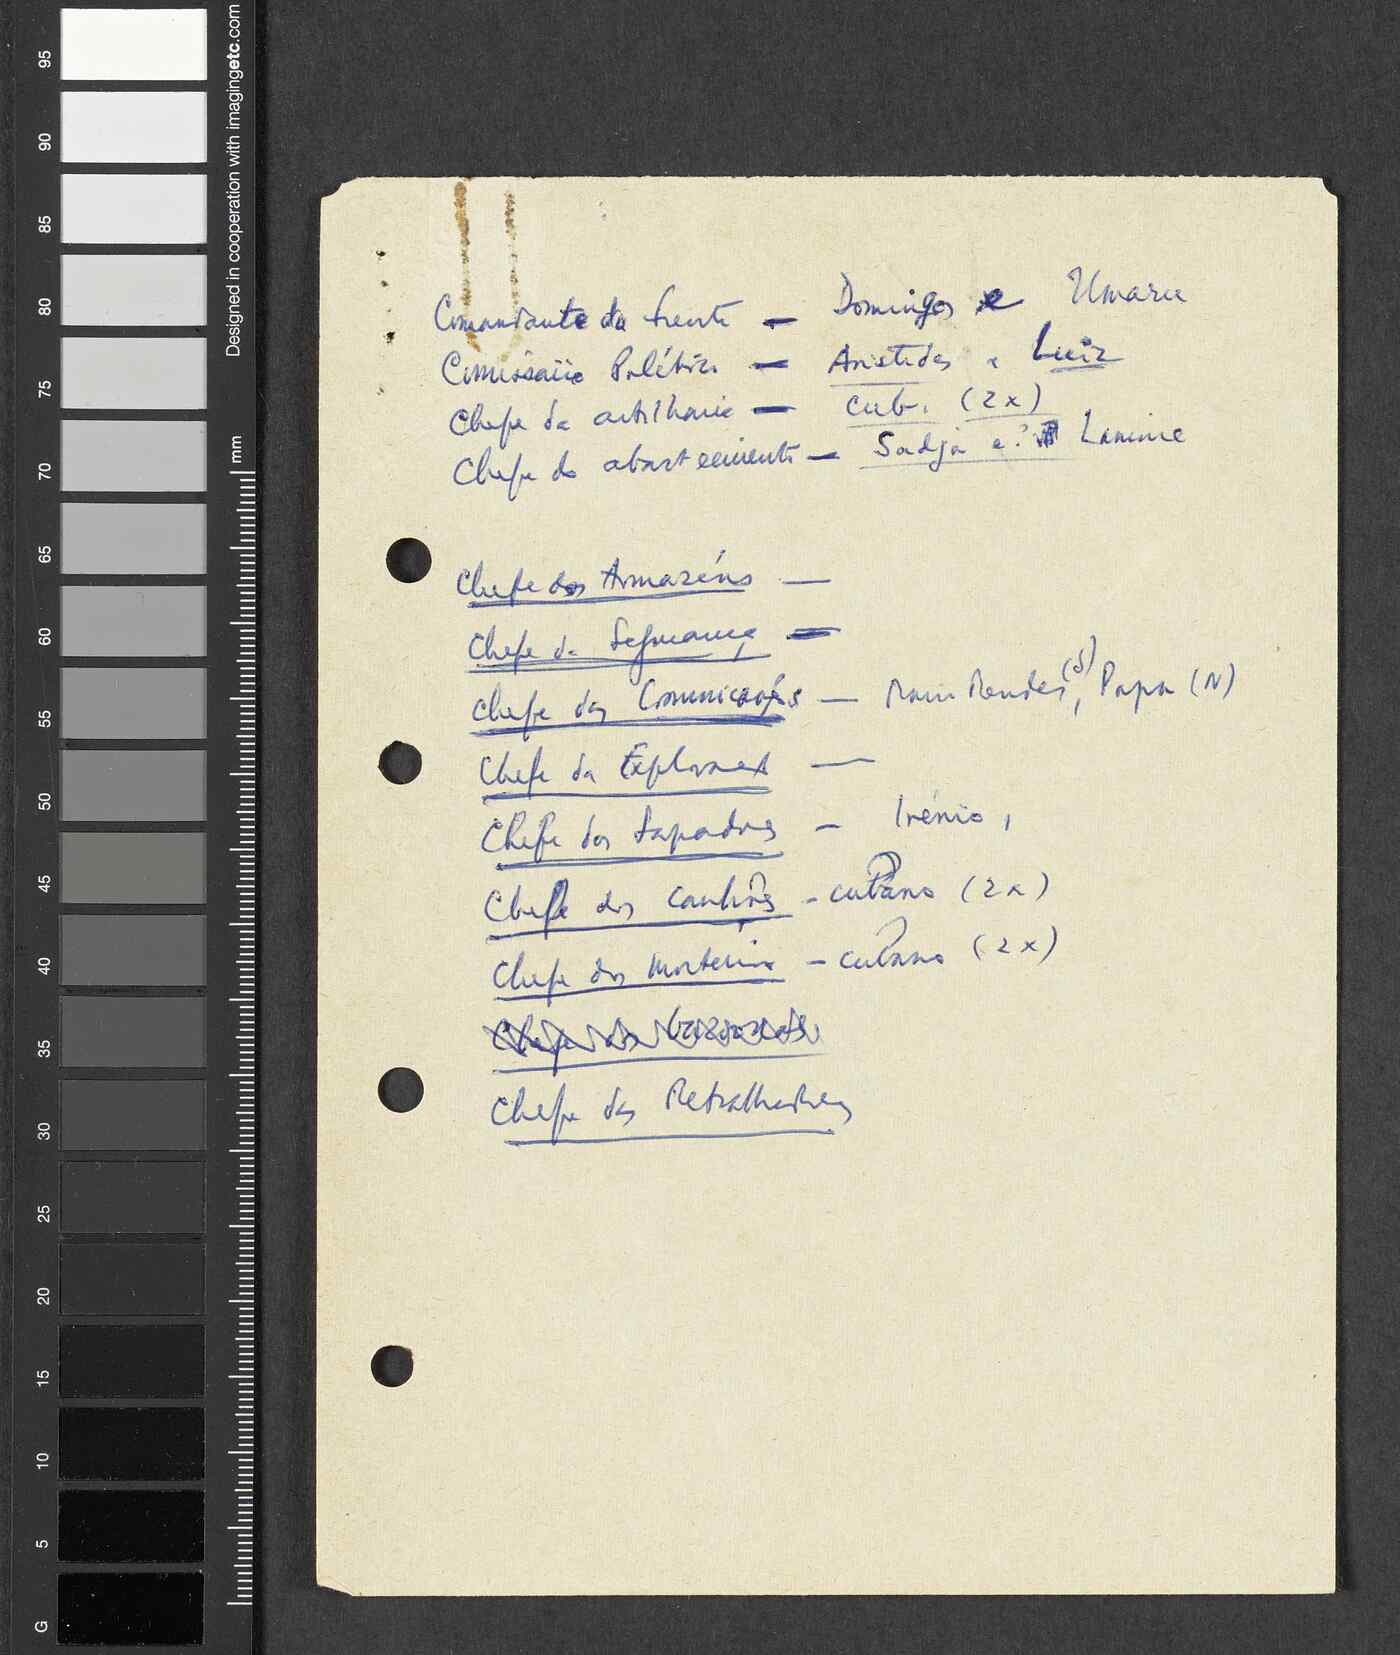 95
90
85
80
75
70
65
60
55
50
45
40
35
30
25
20
15
10
5
G
Designed in cooperation with imagingetc.com
mm
Comandante da frente — Domingos e Umaru
Comissário Político — Aristides e Luiz
Chefe da artilharia — cub. (2x)
Chefe do abastecimento — Sadja e Lamine
Chefe dos Armazéns —
Chefe da Segurança —
Chefe das Comunicações — Mendes (S), Papa (N)
Chefe da Explor
Chefe dos Sapadores — Irénio,
Chefe dos Canhões - cubano (2x)
Chefe dos Morteiros - cubano (2x)
Chefe das